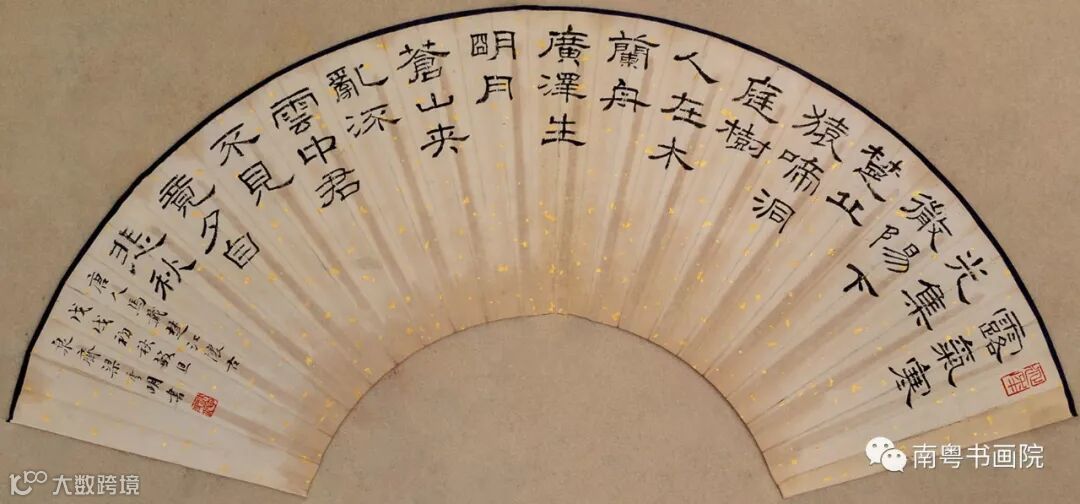 露氣寒
光集
微陽下
楚丘
猿啼洞
庭樹
人在木
蘭舟
廣澤生
朙月
蒼山夾
亂流
雲中君
不見
竟夕自
悲秋
唐人馬戴楚江懷古
戊戌初秋
泉齋梁明書
南粤书画院
大数跨境